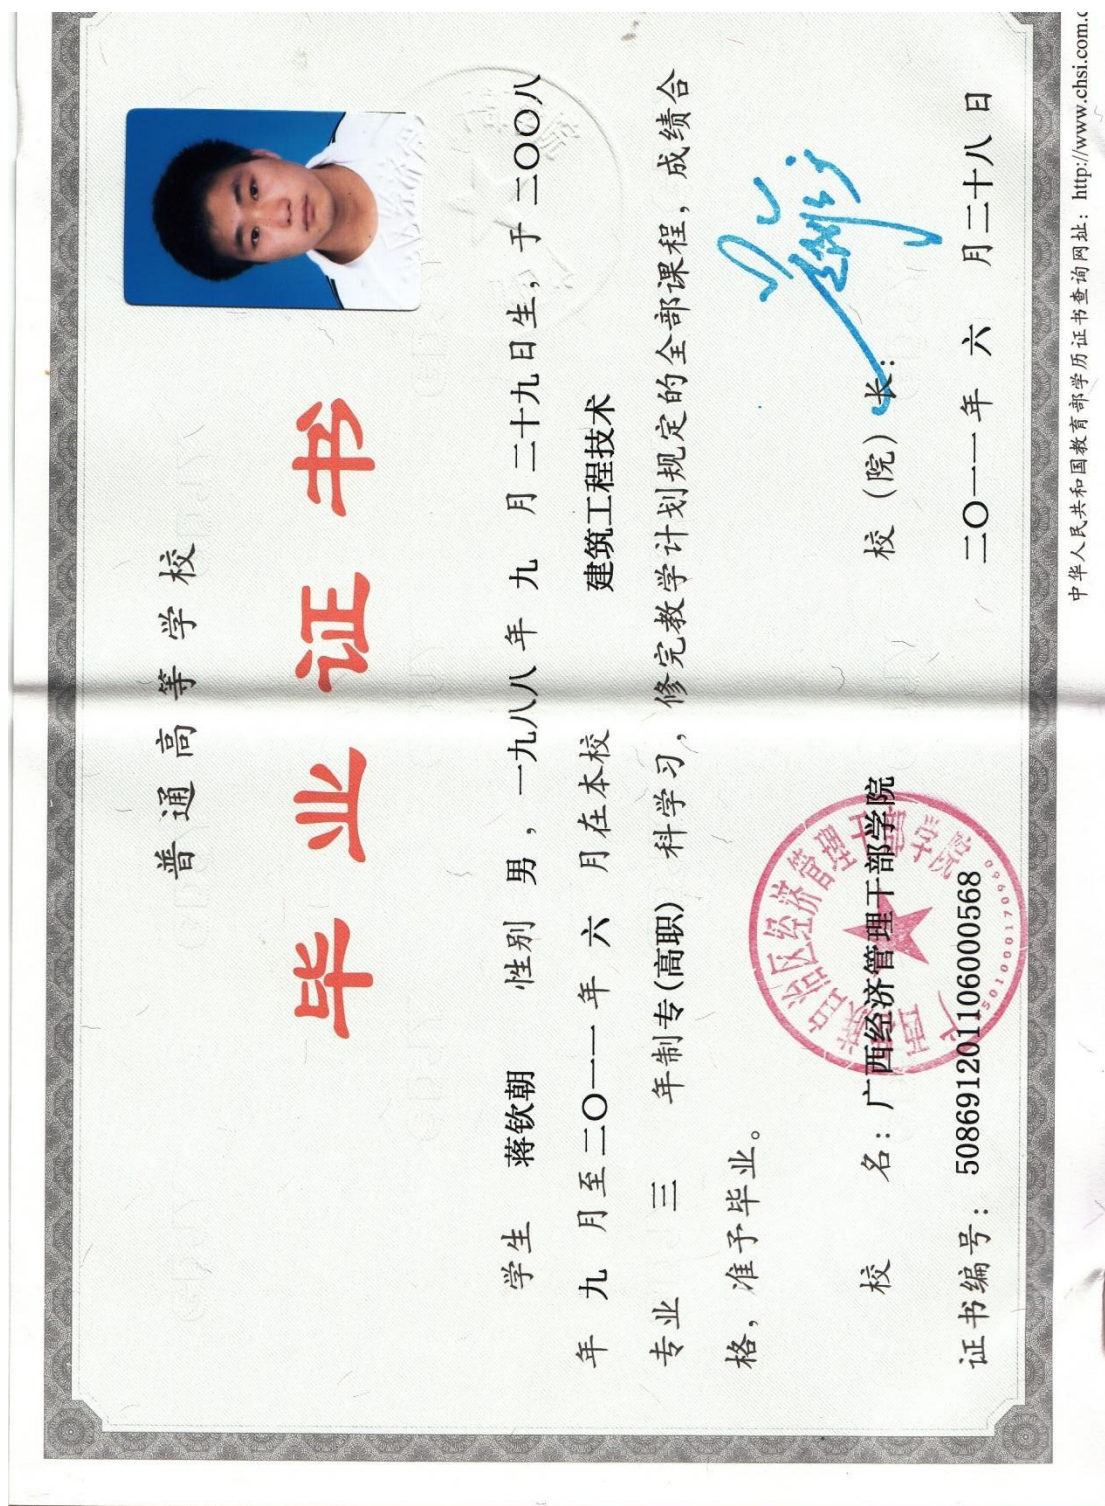 普通高等学校
毕业证书
学生 蒋钦朝 性别 男，一九八八年 九 月二十九日生，于二〇〇八
年 九 月至二〇一一年 六 月在本校 建筑工程技术
专业 三 年制专(高职)科学习，修完教学计划规定的全部课程，成绩合
格，准予毕业。
校 名：广西经济管理干部学院
校（院）长：
证书编号：508691201106000568
二〇一一年 六 月二十八日
中华人民共和国教育部学历证书查询网址：http://www.chsi.com.c